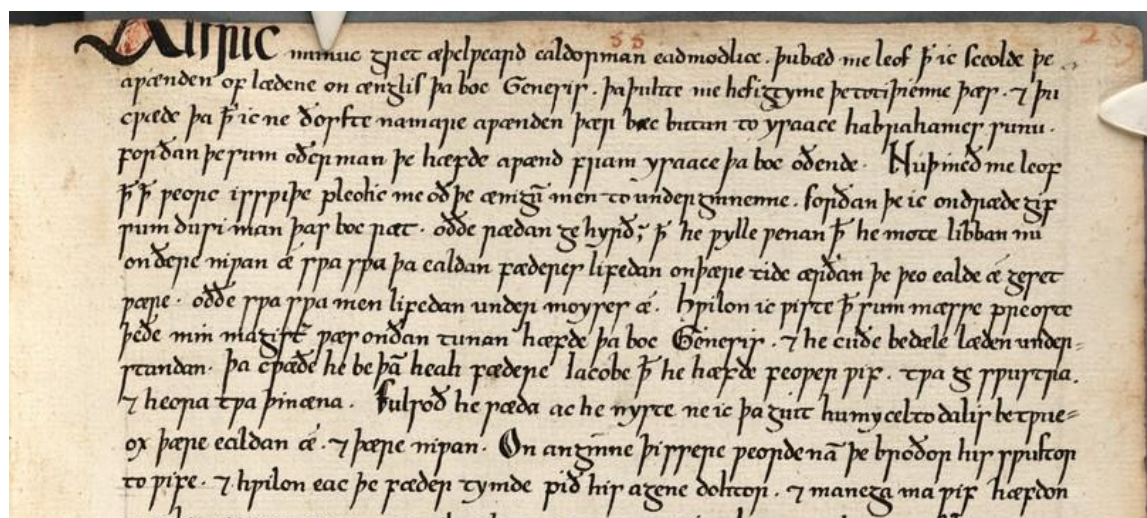 Ælfric munuc gret æþelƿeard ealdorman eadmodlice. þu bæd me leof ꝥ ic sceolde þe
aƿænden of lædene on ænglis þa boc Genesis. þa þuhte me hefigtyme þe to tiþienne þæs. ⁊ þu
cƿæde þa ꝥ ic ne ðorfte na mare aƿænden þæri bæc butan to ysaace habrahames sunu.
forðan þe sum oðer man þe hæfde aƿænd fram ysaace þa boc oð ende. Nu þincð me leof
ꝥ ꝥ ƿeorc is sƿiþe pleolic me oððe ænigū men to underginnenne. forðan þe ic ondræde gif
sum dusi man þas boc ræt. oððe rædan gehyrð; ꝥ he ƿylle ƿenan ꝥ he mote libban nu
on ðere niƿan ǽ sƿa sƿa þa ealdan fæderes lifedan on þære tide ær ðan þe þeo ealde ǽ geset
ƿære. oððe sƿa sƿa men lifedan under moyses ǽ. Hƿilon ic ƿiste ꝥ sum mæsse preoste
þe ðe min magistr̄ ƿæs on ðan tunan hæfde þa boc Genesis. ⁊ he cuðe be dele læden under=
standan. þa cƿæðe he be þā heah fædere Iacobe ꝥ he hæfde feoƿer ƿif. tƿa gesƿustra,
⁊ heora tƿa þinæna. Ful soð he sæda ac he nyste ne ic þa giit hu mycel to dal is betƿue=
ox þære ealdan ǽ. ⁊ þære niƿan. On anginne þissere ƿeorde nā þe broðor his sƿustor
to ƿife. ⁊ hƿilon eac þe fæder tymde ƿið his agene dohtor. ⁊ manega ma ƿif hæfdon